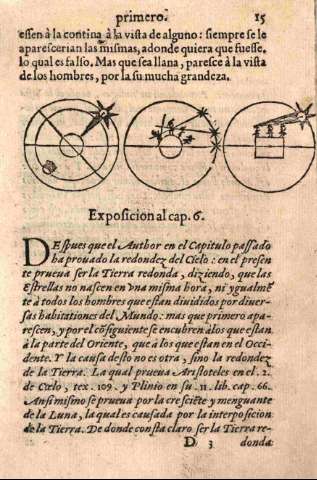 primero. 15
essen à la contina à la vista de alguno: siempre se le
aparescerian las mismas, adonde quiera que fuesse.
lo qual es falso. Mas que sea llana, paresce à la vista
de los hombres, por la su mucha grandeza.
Exposicion al cap. 6.
DEspues que el Author en el Capitulo passado
ha prouado la redondez del Cielo: en el presen
te prueua ser la Tierra redonda, diziendo, que las
Estrellas no nascen en vna misma hora, ni ygualmē
te à todos los hombres que estan diuididos por diuer-
sas habitationes del Mundo: mas que primero apa-
rescen, y por el cōsiguiente se encubren à los que estan
à la parte del Oriente, que à los que estan en el Occi-
dente. Y la causa desto no es otra, sino la redondez
de la Tierra. La qual prueua Aristoteles en el. 2.
de Cœlo, tex. 109. y Plinio en su. 11. lib. cap. 66.
Ansi mismo se prueua por la cresciēte y menguante
de la Luna, la qual es causada por la interposicion
de la Tierra. De donde consta claro ser la Tierra re-
D 3 donda: